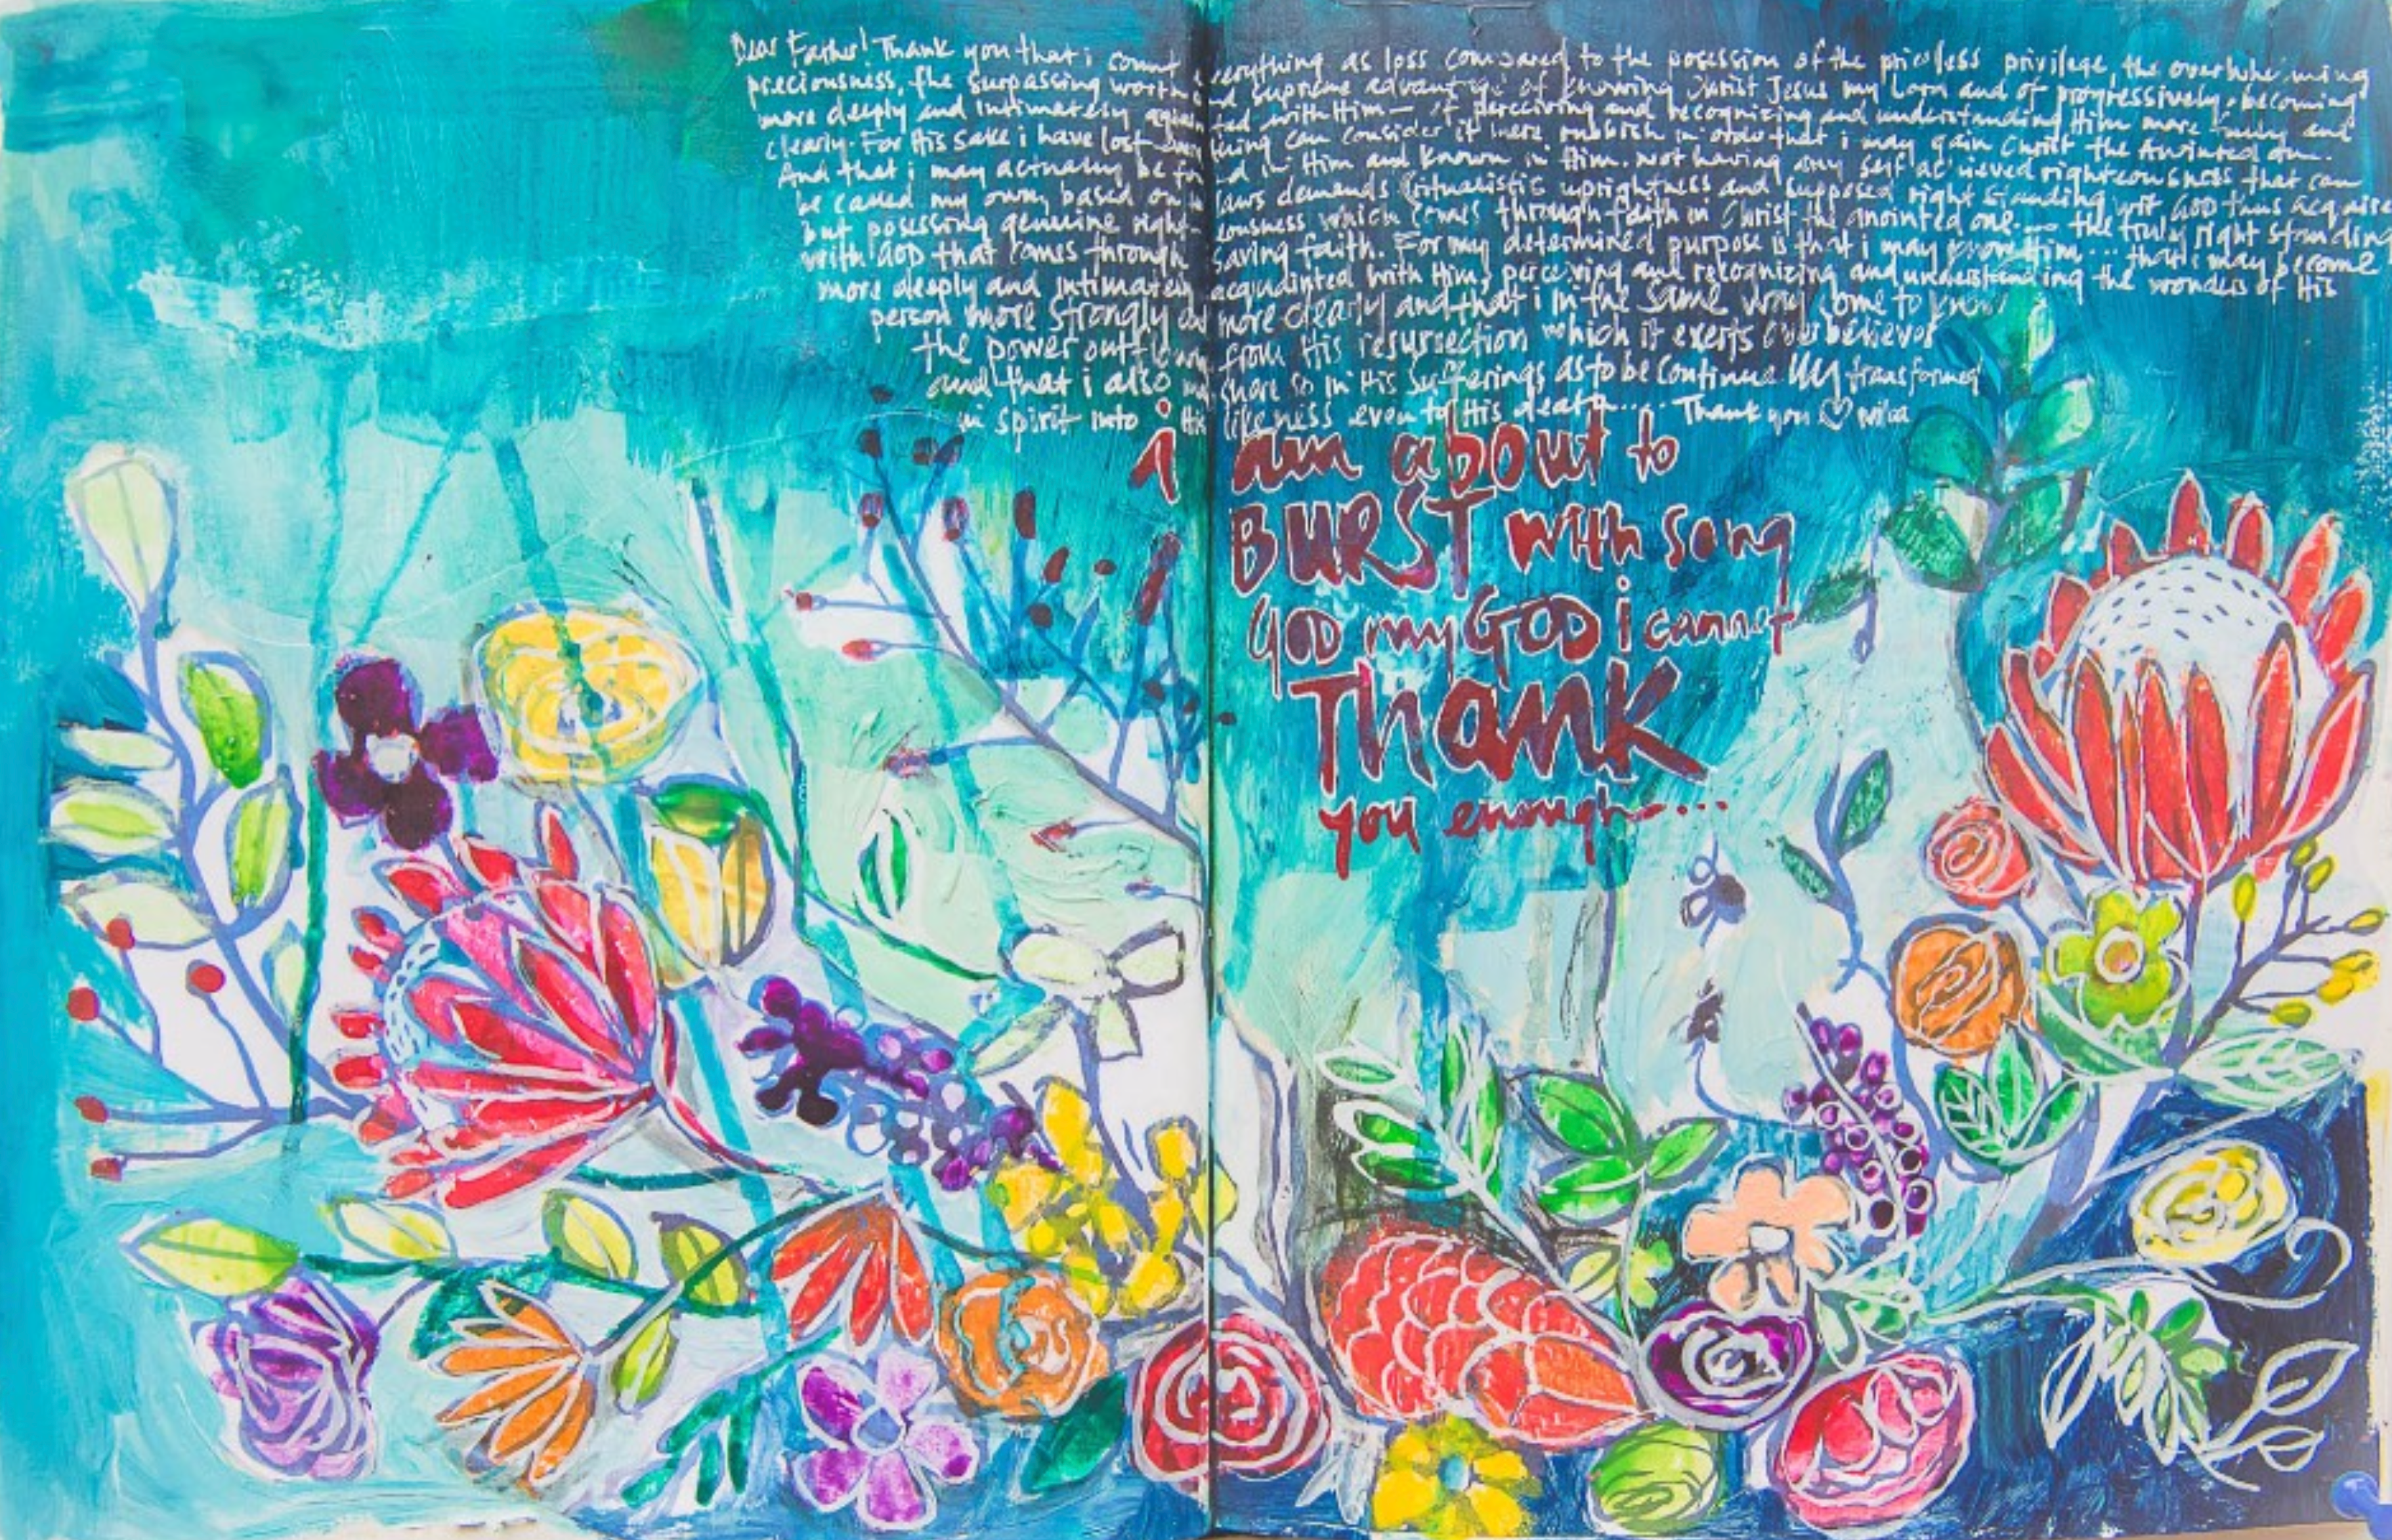 Dear Father! Thank you that i count everything as loss compared to the posession of the priceless privilege, the overwhelming
preciousness, the surpassing worth and supreme advantage of knowing Christ Jesus my Lord and of progressively becoming
more deeply and intimately acquainted with Him - of perceiving and recognizing and understanding Him more fully and
clearly. For His sake i have lost everything can consider it mere rubbish in order that i may gain Christ the Anointed One.
And that i may actually be found in Him and known in Him. not having any self achieved righteousness that can
be called my own, based on laws demands (ritualistic uprightness and supposed right standing wit GOD thus acquired
but posessing genuine righteousness which comes through faith in Christ the anointed one... the truly right standing
with GOD that comes through saving faith. For my determined purpose is that i may know Him... that i may become
more deeply and intimately acquainted with Him, perceiving and recognizing and understanding the wonders of His
person more strongly and more clearly and that i in the same way come to know
the power outflowing from His resurrection which it exerts over believers
and that i also may share so in His sufferings as to be continually transformed
in spirit into His likeness even to His death..... Thank you ♡
i am about to
BURST with song
GOD my GOD i cannot
Thank
you enough....